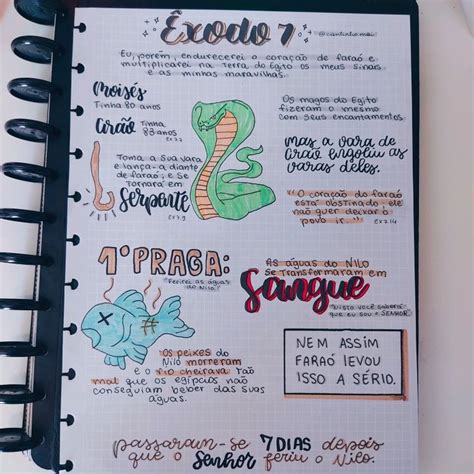 Êxodo 7
@cantinho.mabi
Eu, porém, endurecerei o coração de faraó e
multiplicarei na terra do Egito os meus sinais
e as minhas maravilhas.
Moisés
Tinha 80 anos
Arão Tinha
83 anos
Ex 7.7
Toma a sua vara
e lança-a diante
de faraó; e se
tornará em
Serpente
Ex 7.9
Os magos do Egito
fizeram o mesmo
com seus encantamentos.
Mas a vara de
Arão engoliu as
varas deles.
"O coração do faraó
está obstinado; ele
não quer deixar o
povo ir..." Ex 7.14
1ª PRAGA:
"Ferirei as águas
do Nilo"
As águas do NILO
se transformaram em
Sangue
"Nisto você saberá
que eu sou o SENHOR"
Os peixes do
Nilo morreram
e o rio cheirava tão
mal que os egípcios não
conseguiam beber das suas
águas.
NEM ASSIM
FARAÓ LEVOU
ISSO A SÉRIO.
passaram-se 7 DIAS depois
que o Senhor feriu o Nilo.